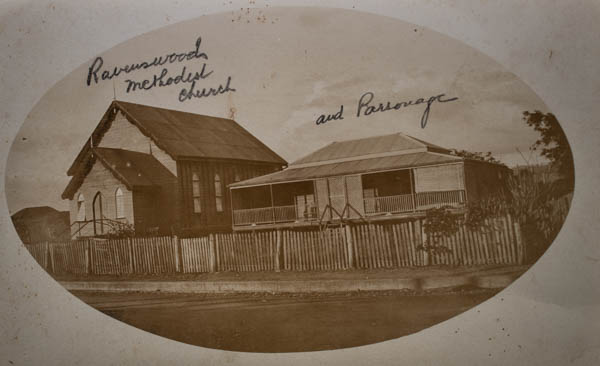 Ravenswood
Methodist
church
and Parsonage